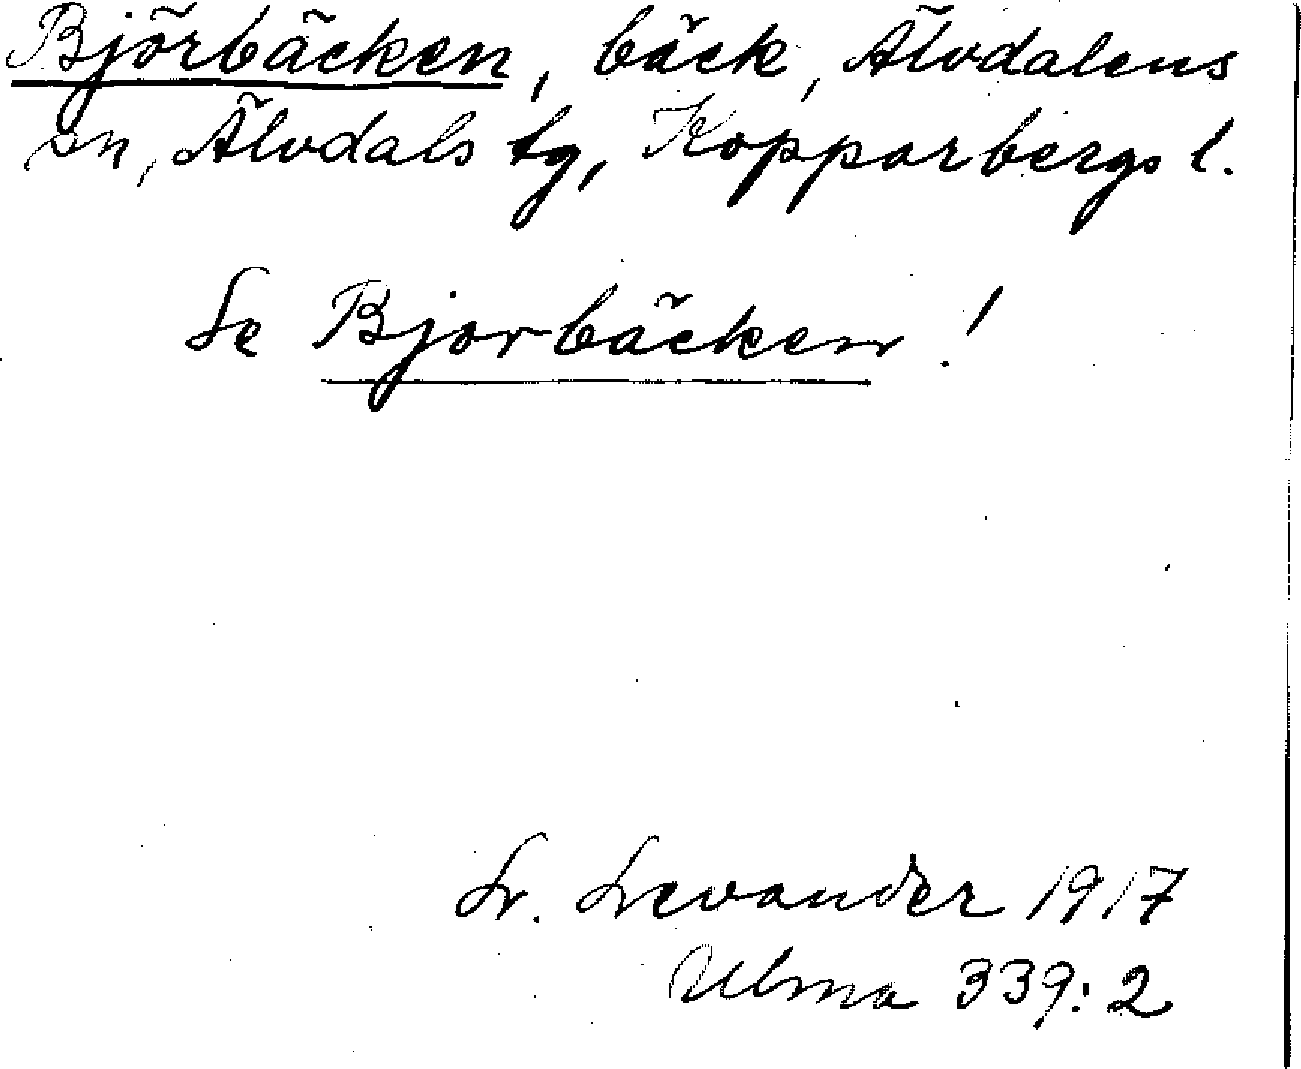 Björbäcken, bäck, Älvdalens
sn, Älvdals tg, Kopparbergs l.
Se Bjorbäcken!
L. Levander 1917
Ulma 339:2